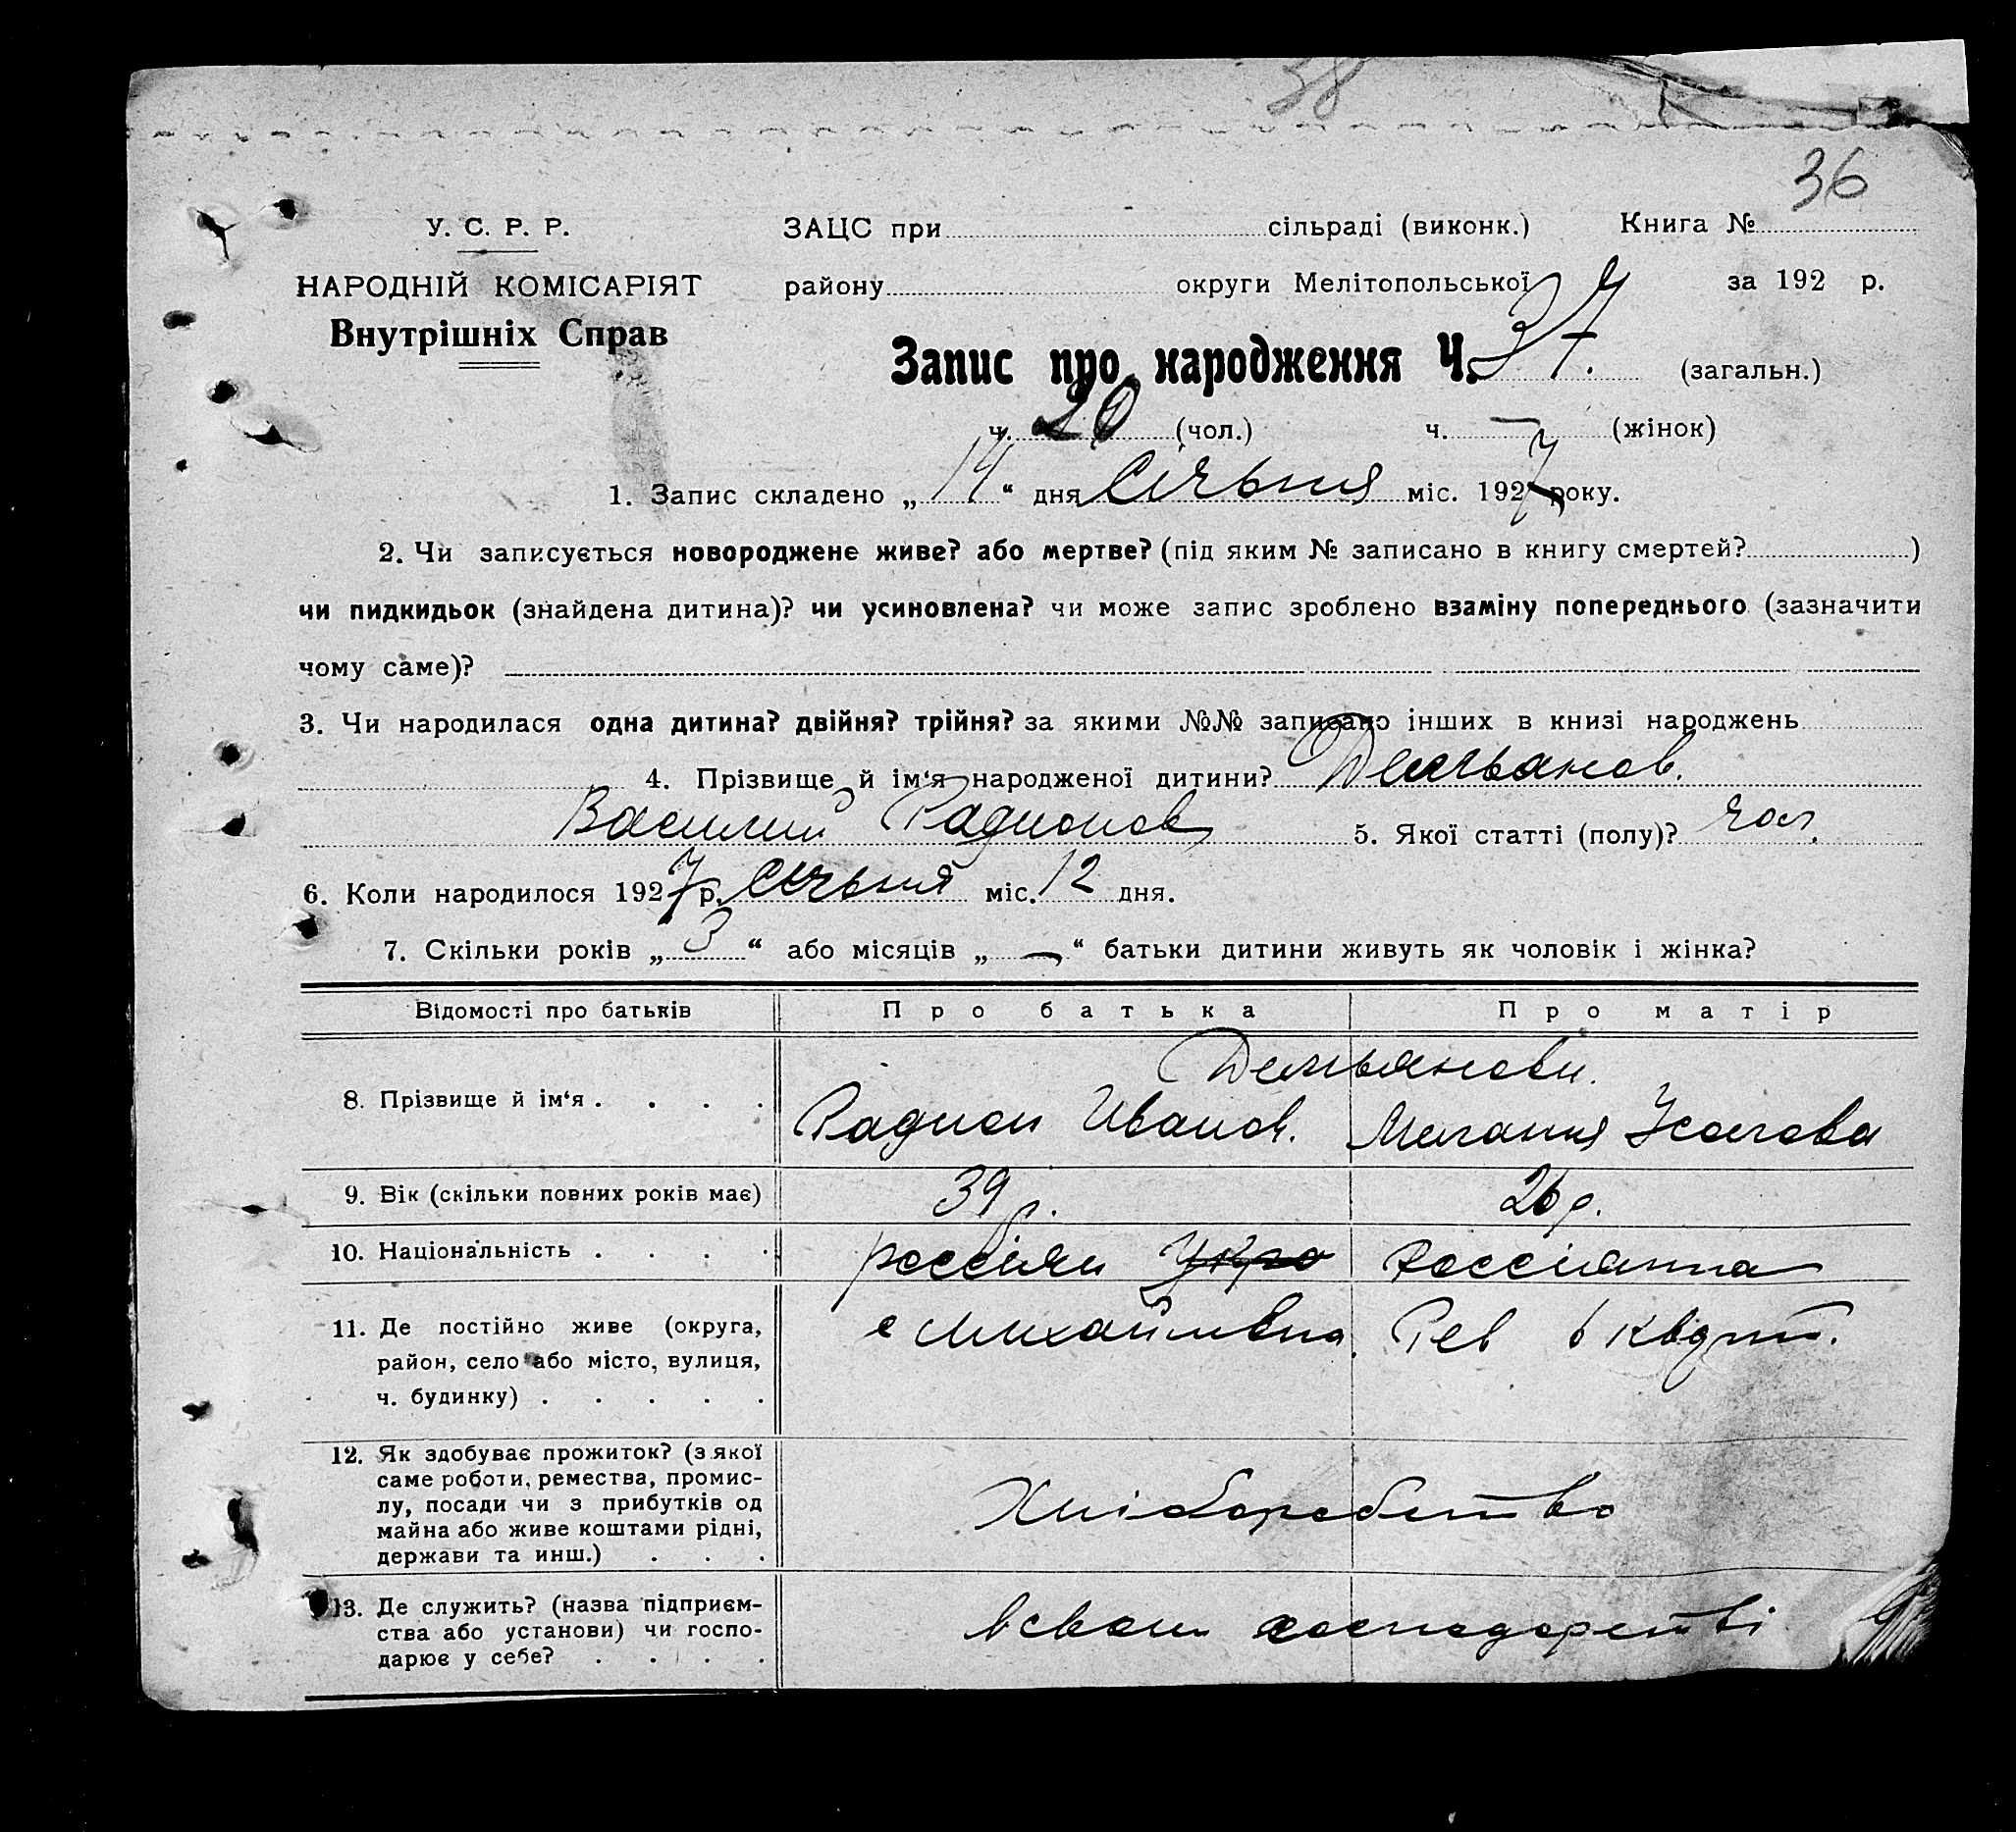 38
36
У. С. Р. Р.
ЗАЦС при сільраді (виконк.) Книга №
НАРОДНІЙ КОМІСАРІЯТ
району округи Мелітопольської за 192 р.
Внутрішніх Справ
Запис про народження Ч. 37. (загальн.)
ч. 20 (чол.) ч. — (жінок)
1. Запис складено „14“ дня січьня міс. 1927 року.
2. Чи записується новороджене живе? або мертве? (під яким № записано в книгу смертей? )
чи пидкидьок (знайдена дитина)? чи усиновлена? чи може запис зроблено взаміну попереднього (зазначити
чому саме)?
3. Чи народилася одна дитина? двійня? трійня? за якими №№ записано інших в книзі народжень
4. Прізвище й ім‘я народженої дитини? Демьянов.
Василий Радионов 5. Якої статті (полу)? чол.
6. Коли народилося 1927 р. січьня міс. 12 дня.
7. Скільки років „3“ або місяців „—“ батьки дитини живуть як чоловік і жінка?
Відомості про батьків Про батька Про матір
Демьянови.
8. Прізвище й ім‘я . . . . Радион Иванов. Мелания
9. Вік (скільки повних років має) 39 р. 26 р.
10. Національність . . . . россіян Укра россіянка
11. Де постійно живе (округа, с Михайлівка. Рев 6 квдрт.
район, село або місто, вулиця,
ч. будинку) . . . . .
12. Як здобуває прожиток? (з якої
саме роботи, ремества, промис-
лу, посади чи з прибутків од Хліборобство
майна або живе коштами рідні,
держави та инш.) . . .
13. Де служить? (назва підприєм-
ства або установи) чи госпо- в свом господарстві
дарює у себе? . . . .